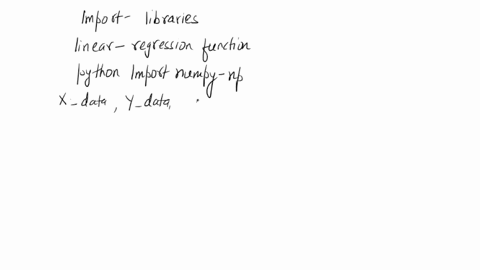 Import- libraries
linear- regression function
python Import numpy-np
X_data, Y_data,